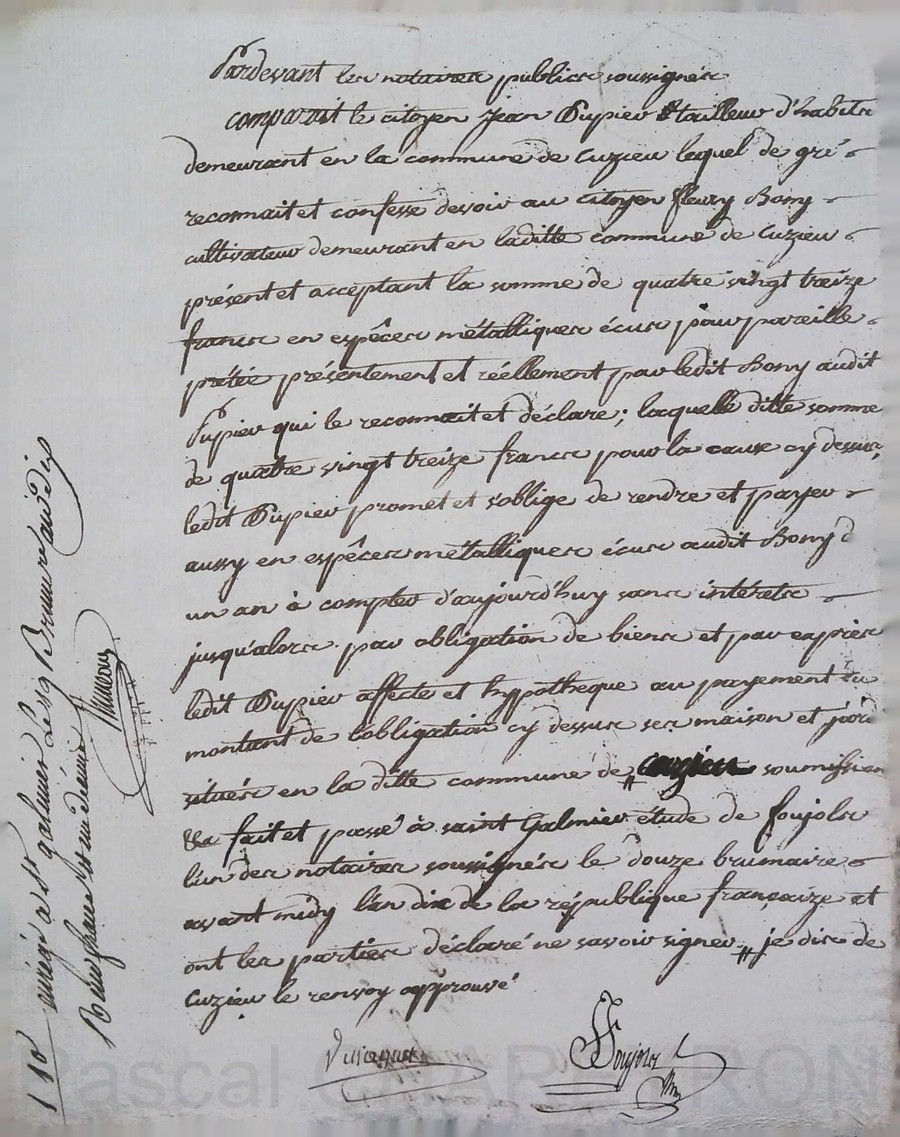 Pardevant les notaires publics soussignés
comparait le citoyen jean Pupier tailleur d'habits
demeurant en la commune de Cuzieu lequel de gré
reconnait et confesse devoir au citoyen fleury Bony
cultivateur demeurant en laditte commune de Cuzieu
présent et acceptant la somme de quatre vingt treize
francs en espêces métalliques écus pour pareille
prétée présentement et réellement par ledit Bony audit
Pupier qui le reconnait et déclare; laquelle ditte somme
de quatre vingt treize francs pour la cause cy dessus,
ledit Pupier promet et s'oblige de rendre et payer
aussy en espêces métalliques écus audit Bony d
un an à compter d'aujourd'huy sans intérets
jusqu'alors par obligation de biens et par exprès
ledit Pupier affecte et hypotheque au payement du
montant de l'obligation cy dessus ses maison et jardi
situés en la ditte commune de cuzieu soumission
&a fait et passé à saint Galmier étude de foujols
l'un des notaires soussignés le douze brumaire
avant midy l'an dix de la république françaize et
ont les parties déclaré ne savoir signer, je dis de
Cuzieu le renvoy approuvé
Foujols
a St galmier Le 19 Brumaire an dix
Pascal CHAPERON